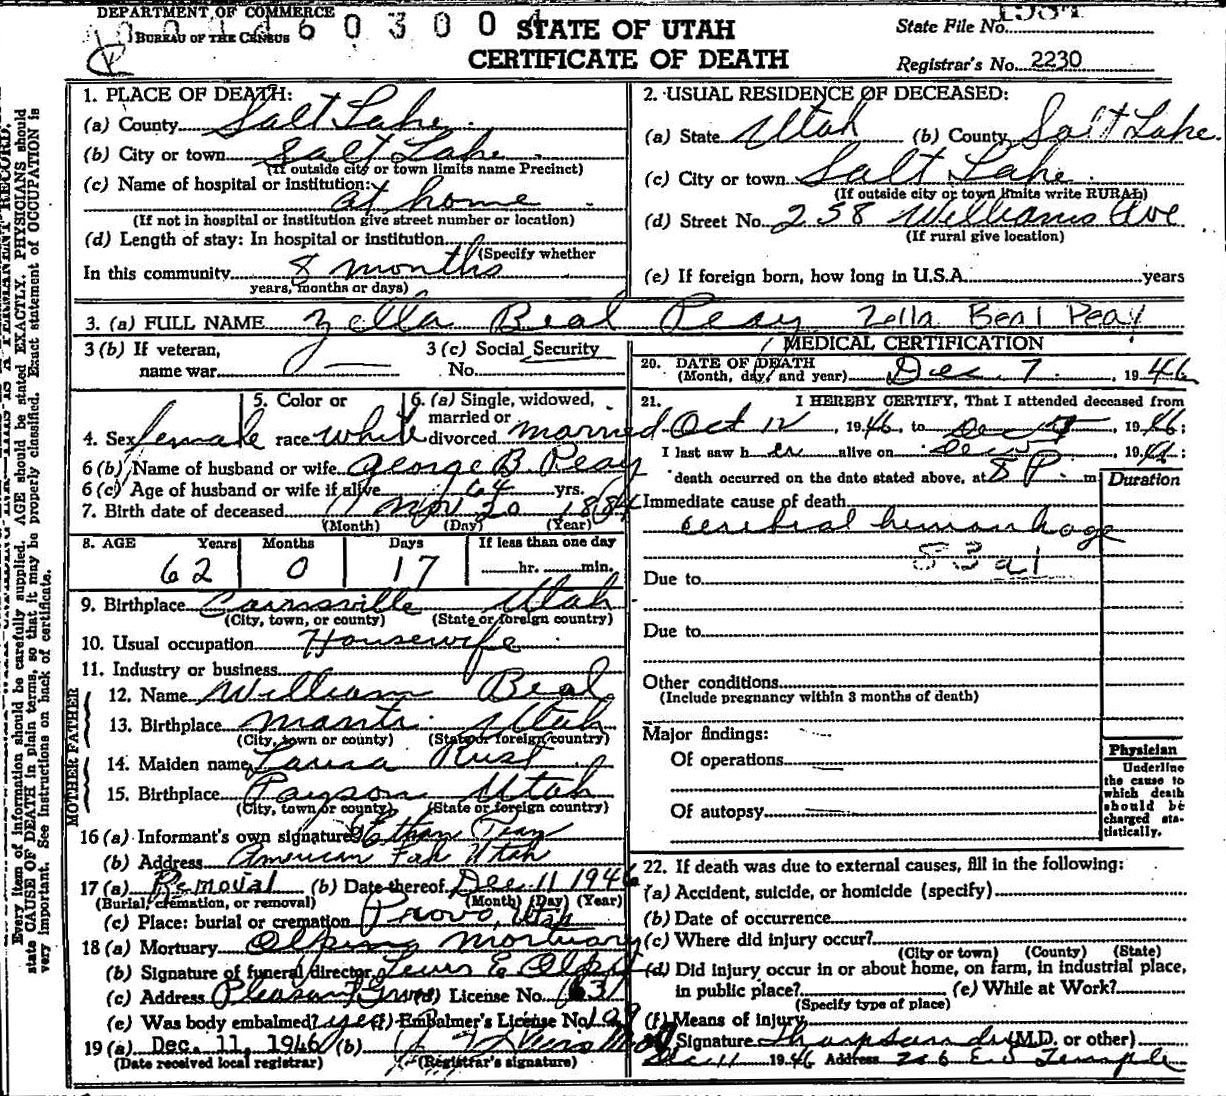 DEPARTMENT OF COMMERCE
BUREAU OF THE CENSUS
STATE OF UTAH
CERTIFICATE OF DEATH
State File No.
Registrar's No. 2230
1. PLACE OF DEATH:
(a) County Salt Lake
(b) City or town Salt Lake
(If outside city or town limits name Precinct)
(c) Name of hospital or institution:
at home
(If not in hospital or institution give street number or location)
(d) Length of stay: In hospital or institution
(Specify whether
In this community 8 months
years, months or days)
2. USUAL RESIDENCE OF DECEASED:
(a) State Utah (b) County Salt Lake.
(c) City or town Salt Lake
(If outside city or town limits write RURAL)
(d) Street No. 258 Williams Ave
(If rural give location)
(e) If foreign born, how long in U.S.A. years
3. (a) FULL NAME Zella Beal Peay Zella Beal Peay
3 (b) If veteran,
name war
3 (c) Social Security
No.
4. Sex female
5. Color or
race white
6. (a) Single, widowed,
married or
divorced married
6 (b) Name of husband or wife George B. Peay
6 (c) Age of husband or wife if alive 64 yrs.
7. Birth date of deceased Nov 20 1884
(Month) (Day) (Year)
8. AGE Years Months Days If less than one day
62 0 17 hr. min.
9. Birthplace Utah
(City, town, or county) (State or foreign country)
10. Usual occupation Housewife
11. Industry or business
FATHER
12. Name William Beal
13. Birthplace Manti Utah
(City, town or county) (State or foreign country)
MOTHER
14. Maiden name Rust
15. Birthplace Payson Utah
(City, town or county) (State or foreign country)
16 (a) Informant's own signature
(b) Address American Fork Utah
17 (a) Removal (b) Date thereof Dec. 11 1946
(Burial, cremation, or removal) (Month) (Day) (Year)
(c) Place: burial or cremation Provo, Utah
18 (a) Mortuary Mortuary
(b) Signature of funeral director Lewis E.
(c) Address Pleasant Grove (d) License No.
(e) Was body embalmed? yes (f) Embalmer's License No.
19 (a) Dec. 11, 1946 (b)
(Date received local registrar) (Registrar's signature)
MEDICAL CERTIFICATION
20. DATE OF DEATH
(Month, day, and year) Dec. 7 1946
21. I HEREBY CERTIFY, That I attended deceased from
Oct 12, 1946, to Dec 7, 1946;
I last saw her alive on Dec, 1946;
death occurred on the date stated above, at 8 P. m
Duration
Immediate cause of death
cerebral hemorrhage
Due to
Due to
Other conditions
(Include pregnancy within 3 months of death)
Major findings:
Of operations
Of autopsy
Physician
Underline
the cause to
which death
should be
charged sta-
tistically.
22. If death was due to external causes, fill in the following:
(a) Accident, suicide, or homicide (specify)
(b) Date of occurrence
(c) Where did injury occur?
(City or town) (County) (State)
(d) Did injury occur in or about home, on farm, in industrial place,
in public place? (e) While at Work?
(Specify type of place)
(f) Means of injury
Signature (M.D. or other)
Dec 11 1946 Address
Every item of information should be carefully supplied. AGE should be stated EXACTLY. PHYSICIANS should
state CAUSE OF DEATH in plain terms, so that it may be properly classified. Exact statement of OCCUPATION is
very important. See instructions on back of certificate.